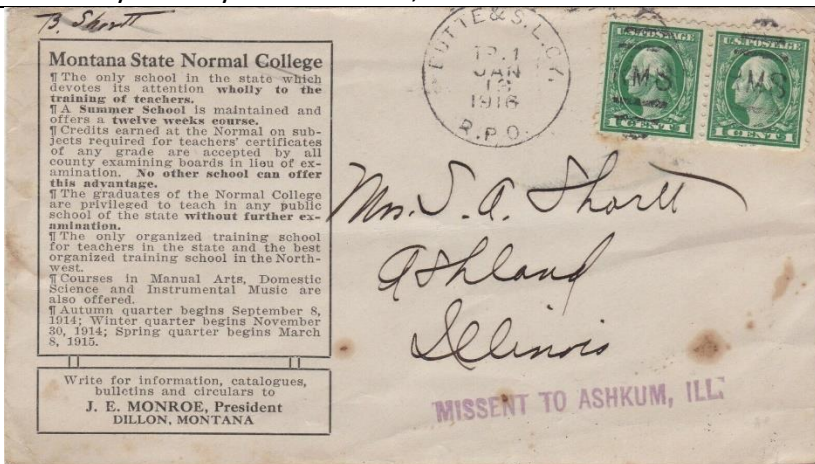 B. Shortt
Montana State Normal College
¶ The only school in the state which
devotes its attention wholly to the
training of teachers.
¶ A Summer School is maintained and
offers a twelve weeks course.
¶ Credits earned at the Normal on sub-
jects required for teachers' certificates
of any grade are accepted by all
county examining boards in lieu of ex-
amination. No other school can offer
this advantage.
¶ The graduates of the Normal College
are privileged to teach in any public
school of the state without further ex-
amination.
¶ The only organized training school
for teachers in the state and the best
organized training school in the North-
west.
¶ Courses in Manual Arts, Domestic
Science and Instrumental Music are
also offered.
¶ Autumn quarter begins September 8,
1914; Winter quarter begins November
30, 1914; Spring quarter begins March
8, 1915.
Write for information, catalogues,
bulletins and circulars to
J. E. MONROE, President
DILLON, MONTANA
BUTTE & S.L.CY.
JAN
1916
R.P.O.
U.S. POSTAGE
1 CENT 1
U.S. POSTAGE
1 CENT 1
RMS
RMS
Mrs. S. A. Shortt
Ashland
Illinois
MISSENT TO ASHKUM, ILL.